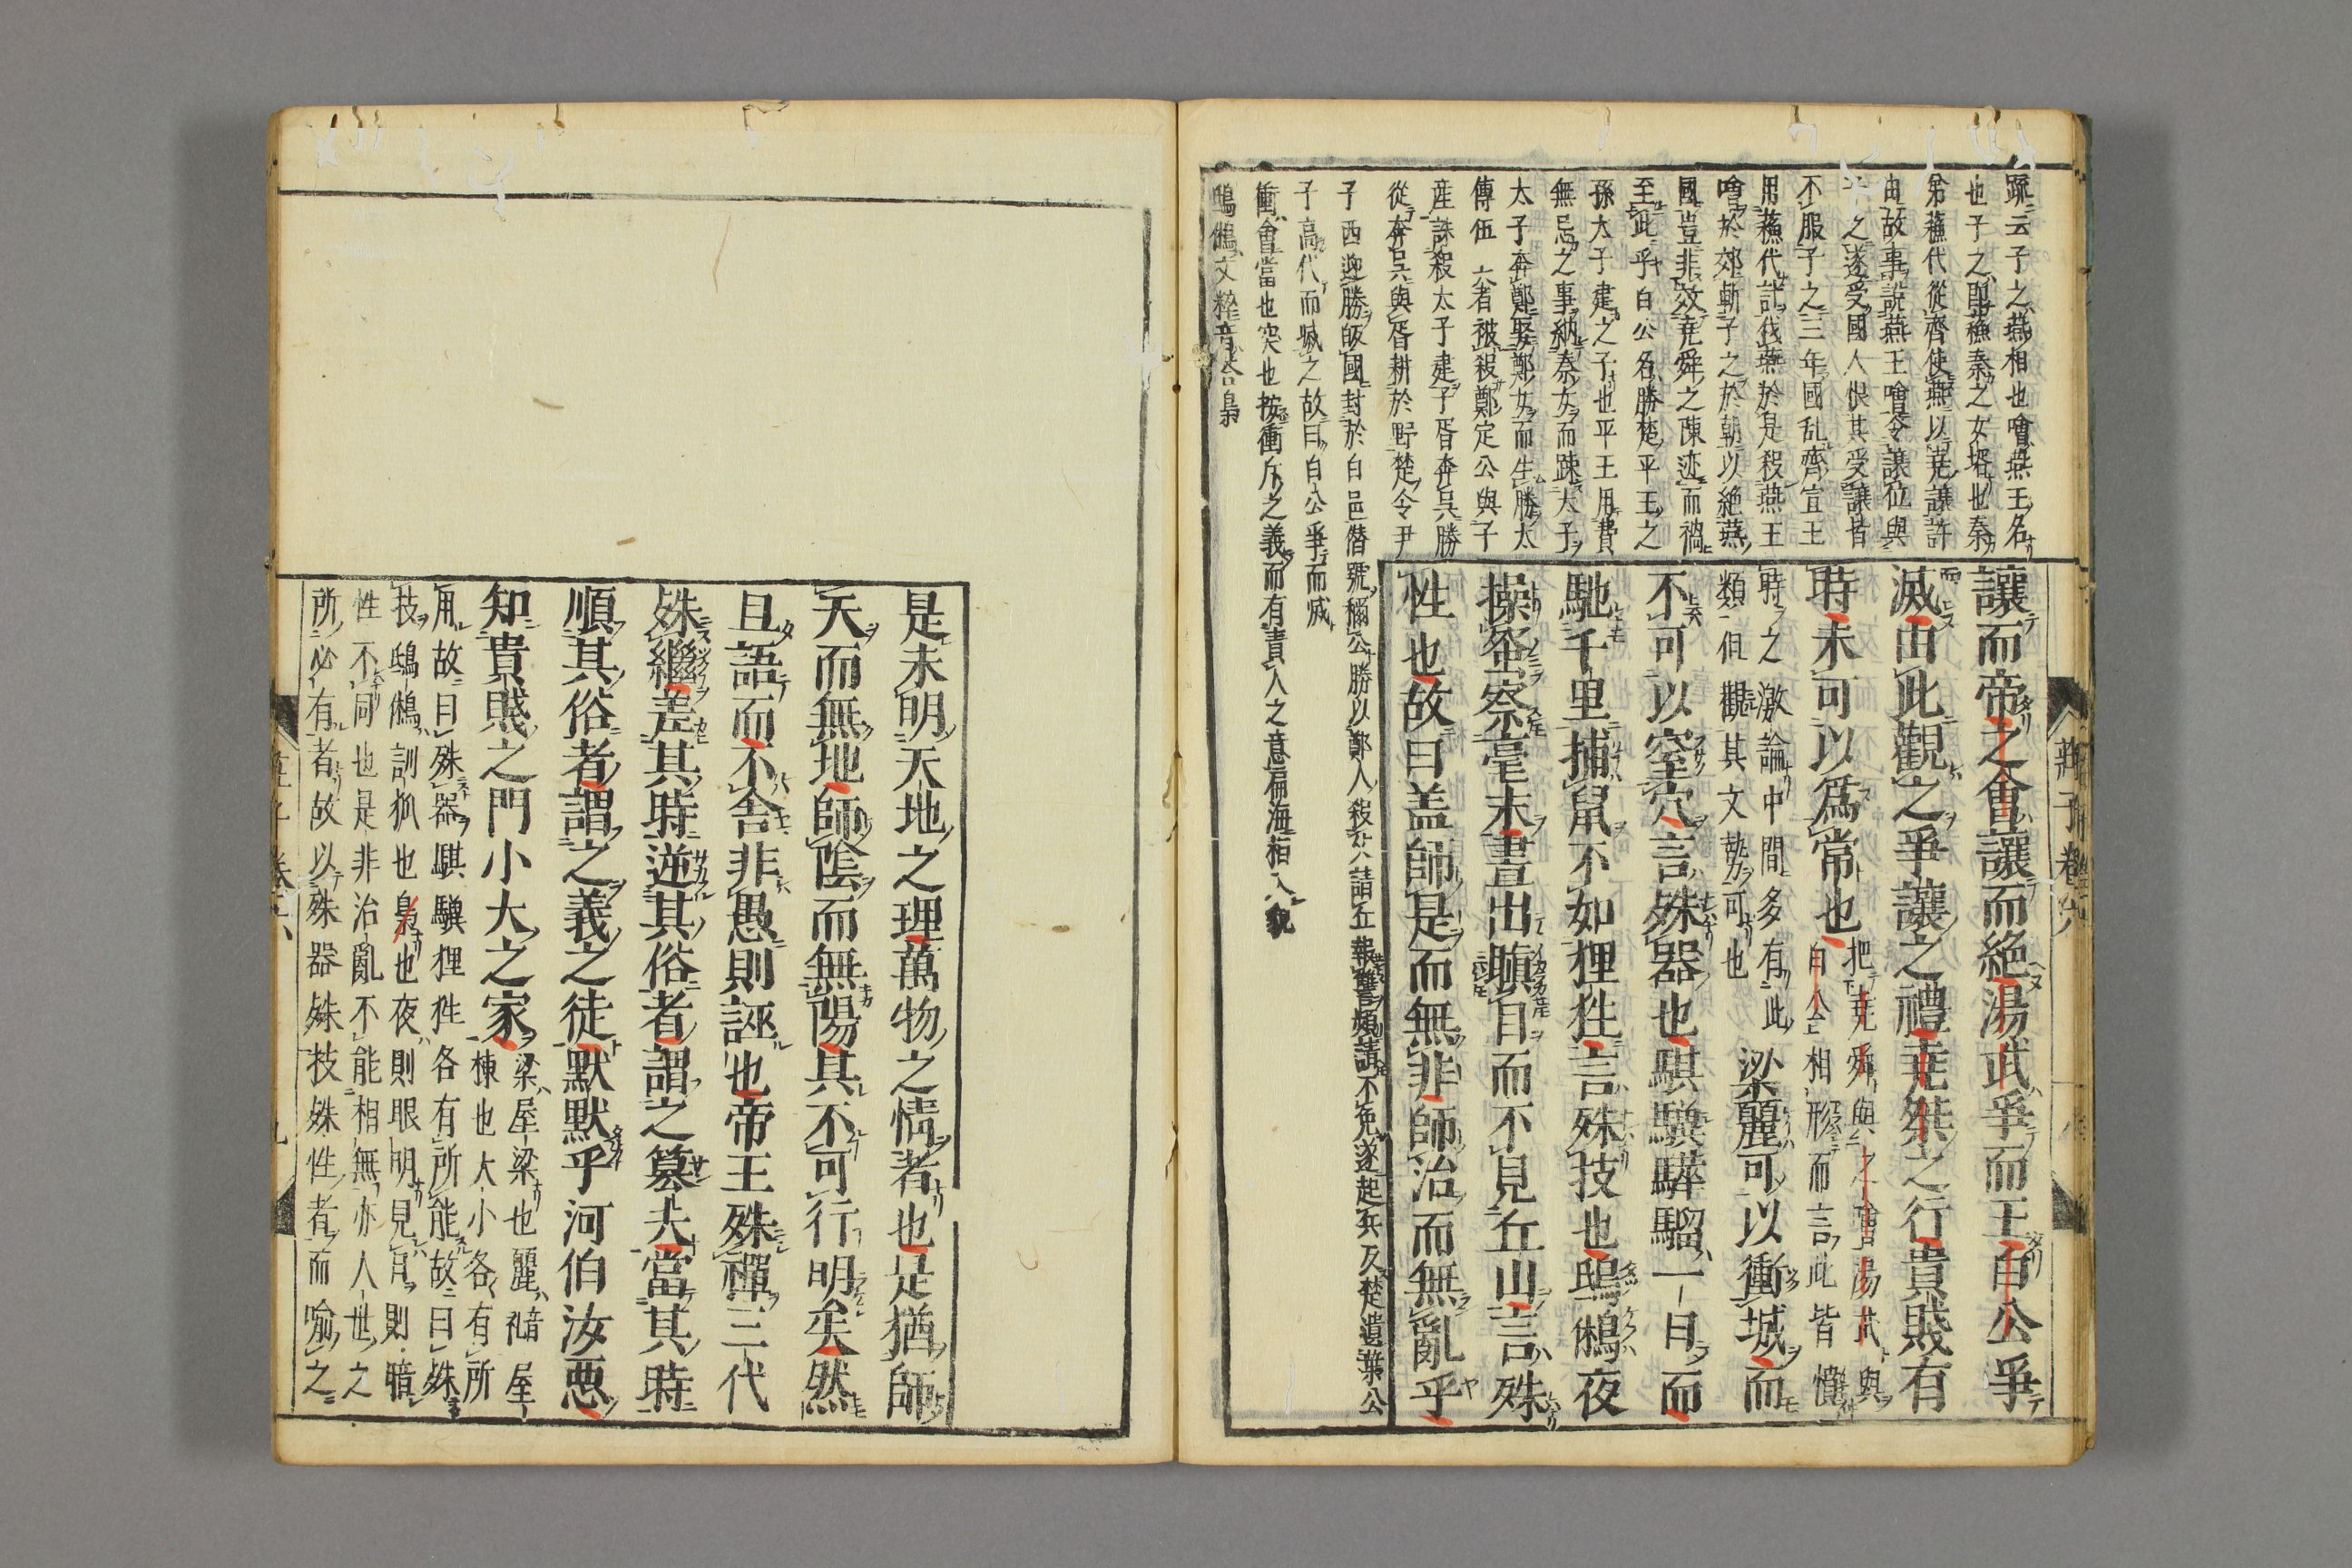 疏云子之燕相也噲燕王名
也子之即蘓秦之女壻也秦
弟蘓代從齊使燕以堯讓許
由故事說燕王噲令讓位與
之遂受國人恨其受讓皆
不服子之三年國乱齊宣王
用蘓代計伐燕於是殺燕王
噲於郊斬子之於朝以絶燕
國豈非效堯舜之陳迹而禍
至此乎白公名勝楚平王之
孫太子建之子也平王用費
無忌之事納秦女而踈太子
太子奔鄭娶鄭女而生勝太
傅伍奢被殺鄭定公與子
産誅殺太子建子胥奔吳勝
從奔吳與胥耕於野楚令尹
子西迎勝皈國封於白邑僭號稱公勝以鄭人殺父請丘報讐頻請不免遂起兵反楚遣葉公
子高代而滅之故曰白公爭而滅
衝會當也突也按衝斥之義而有責人之意扁海猪入皃
鴟鵂文粹音合梟
讓而帝之噲讓而絶湯武爭而王白公爭
滅由此觀之爭讓之禮堯桀之行貴賤有
時未可以爲常也把堯舜與之噲湯武與
白公相形而言此皆憤
時之激論中間多有此
類但觀其文勢可也
梁麗可以衝城而
不可以窒穴言殊器也騏驥驊騮一日而
馳千里捕鼠不如狸狌言殊技也鴟鵂夜
撮蚤察毫末晝出瞋目而不見丘山言殊
性也故曰盖師是而無非師治而無亂乎
莊子 卷六
是未明天地之理萬物之情者也是猶師
天而無地師陰而無陽其不可行明矣然
且語而不舍非愚則誣也帝王殊禪三代
殊繼差其時逆其俗者謂之簒夫當其時
順其俗者謂之義之徒默默乎河伯汝惡
知貴賤之門小大之家梁屋梁也麗屋
棟也大小各有所
用故曰殊器騏驥狸狌各有所能故曰殊
技鴟鵂訓狐也梟也夜則眼明見日則暗
性不同也是非治亂不能相無亦人世之
所必有者故以殊器殊技殊性者而喩之